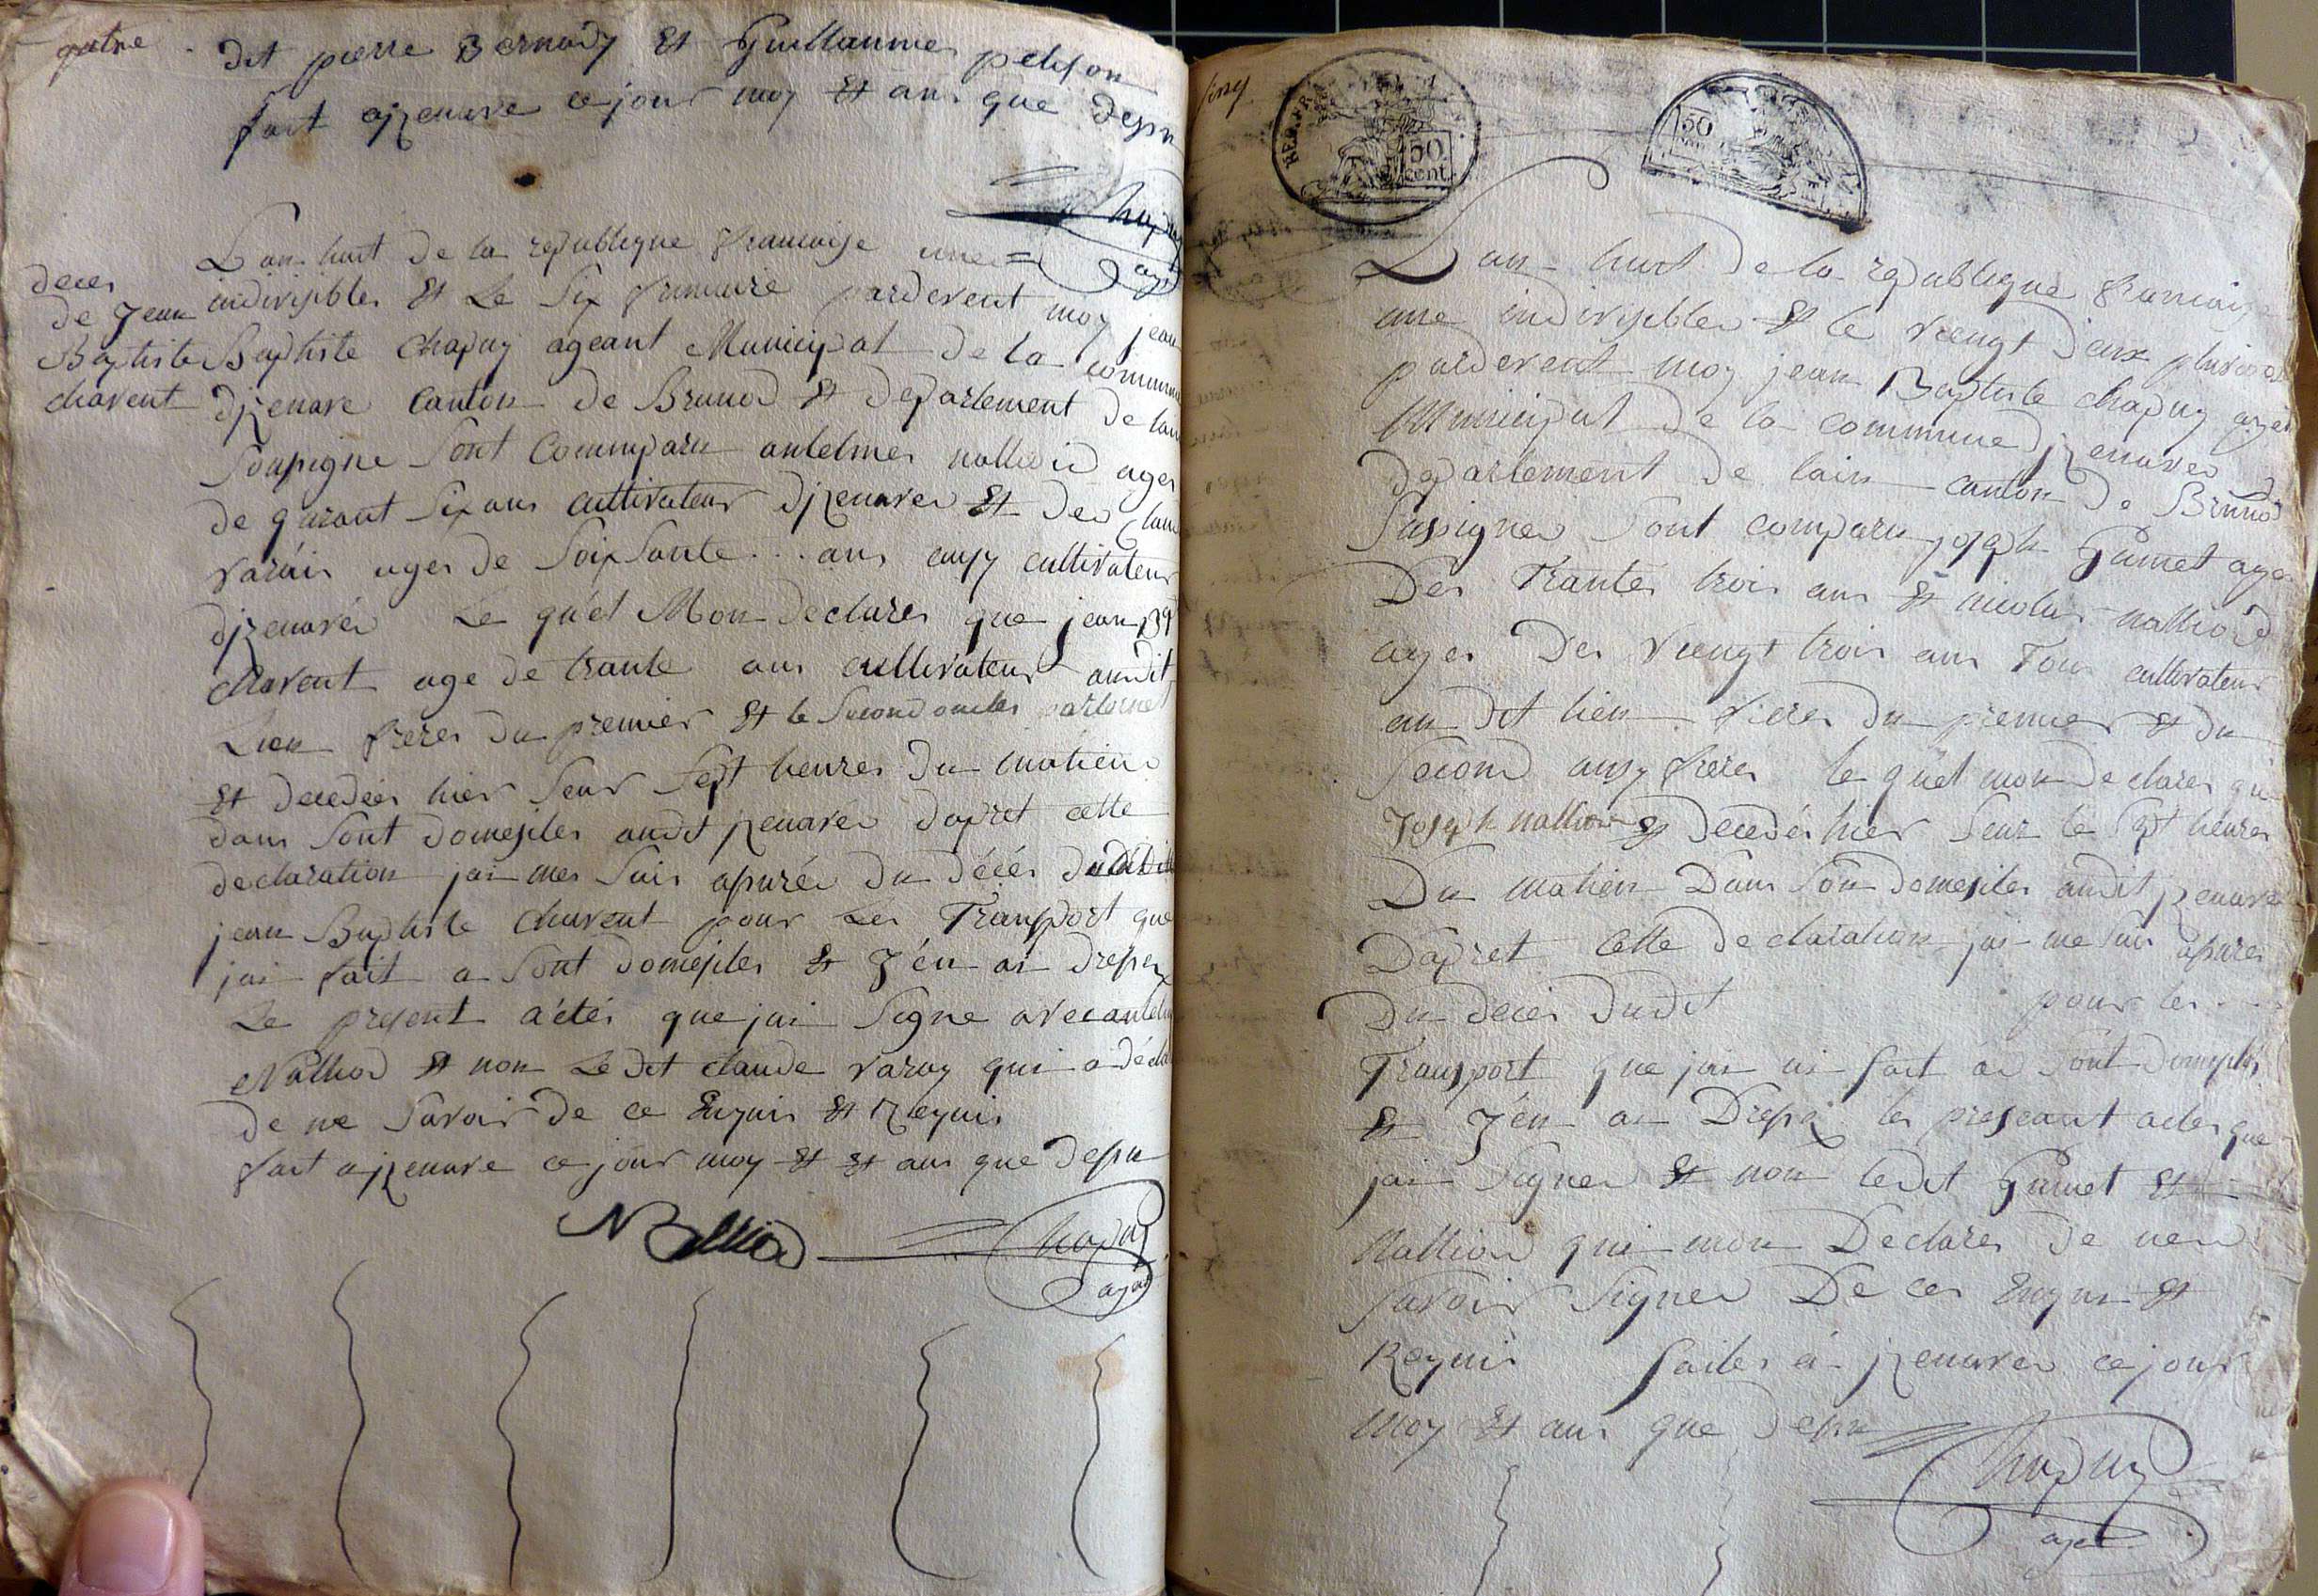 quatre
dit pierre Bernody Et Guillaume pelison
fait ajzenave ce jour moy Et ans que desu
Chapuy
agt
Deces
De Jean
Baptiste
charent
L'an huit De la republique francaise une
indivisibles Et Le Six frimaire pardevent moy jean
Baptiste Chapuy ageant Municipal De la commune
djzenave Canton De Brunod Et departement De lain
Soupigne Sont Commparu antelmes nalliod ages
De quarant Six ans cultivateur djzenaves Et De Clau
varain ages De Soixsante ... ans ausy cultivateur
djzenavés Le quel Mon Declares que jean B
charent age De trante ans cultivateur audit
Lieu freres du premier Et le Second oncles paternel
Et decedées hier Seur Sept heures Du matiens
dans Sont Domesiles audit jzenaves dapret cette
declaration jai mes Suis apurés Du décés Dudit
jean Baptiste charent pour Les Transport que
jai fait a Sont Domesiles Et J'en ai drepe
Le present actés que jai Signe avec antelm
Nalliod Et non Le Dit claude varay qui a décla
De ne Savoir De ce Enquis Et Requis
fait ajzenave ce jour moy Et Et ans que Desu
Nalliod Chapuy
agt
Sinq
REP. FRA
50
cent.
50
L'an huit De la republique francaize
une indivisibles Et le viengt Deux pluviose
pardevent moy jean Baptiste chapuy agen
Municipal De la commune djzenaves
departement De lain canton De Brunod
Susignes Sont comparu joseph Guinet age
Des Trantes trois ans Et nicolas nalliod
ages Des viengt trois ans Tous cultivateur
au dit lieu freres Du premier Et du
Second ausy freres le quel mon declares que
Joseph nalliod Et decedés hier Seur le Sept heures
Du matien Dans Son domesiles audit jzenave
Dapret Cette Declaration jai me Suis apures
Du deces Dudit pour les
Transport que jai ai fait a Sont Domesiles
Et J'en ai Drepé les preseant actes que
jai Signes Et non ledit Guinet Et
Nalliod qui mon Declares De nen
Savoir Signer De ces Enquis Et
Requis faites a jzenaves ce jour
moy Et ans que Desu
Chapuy
agt